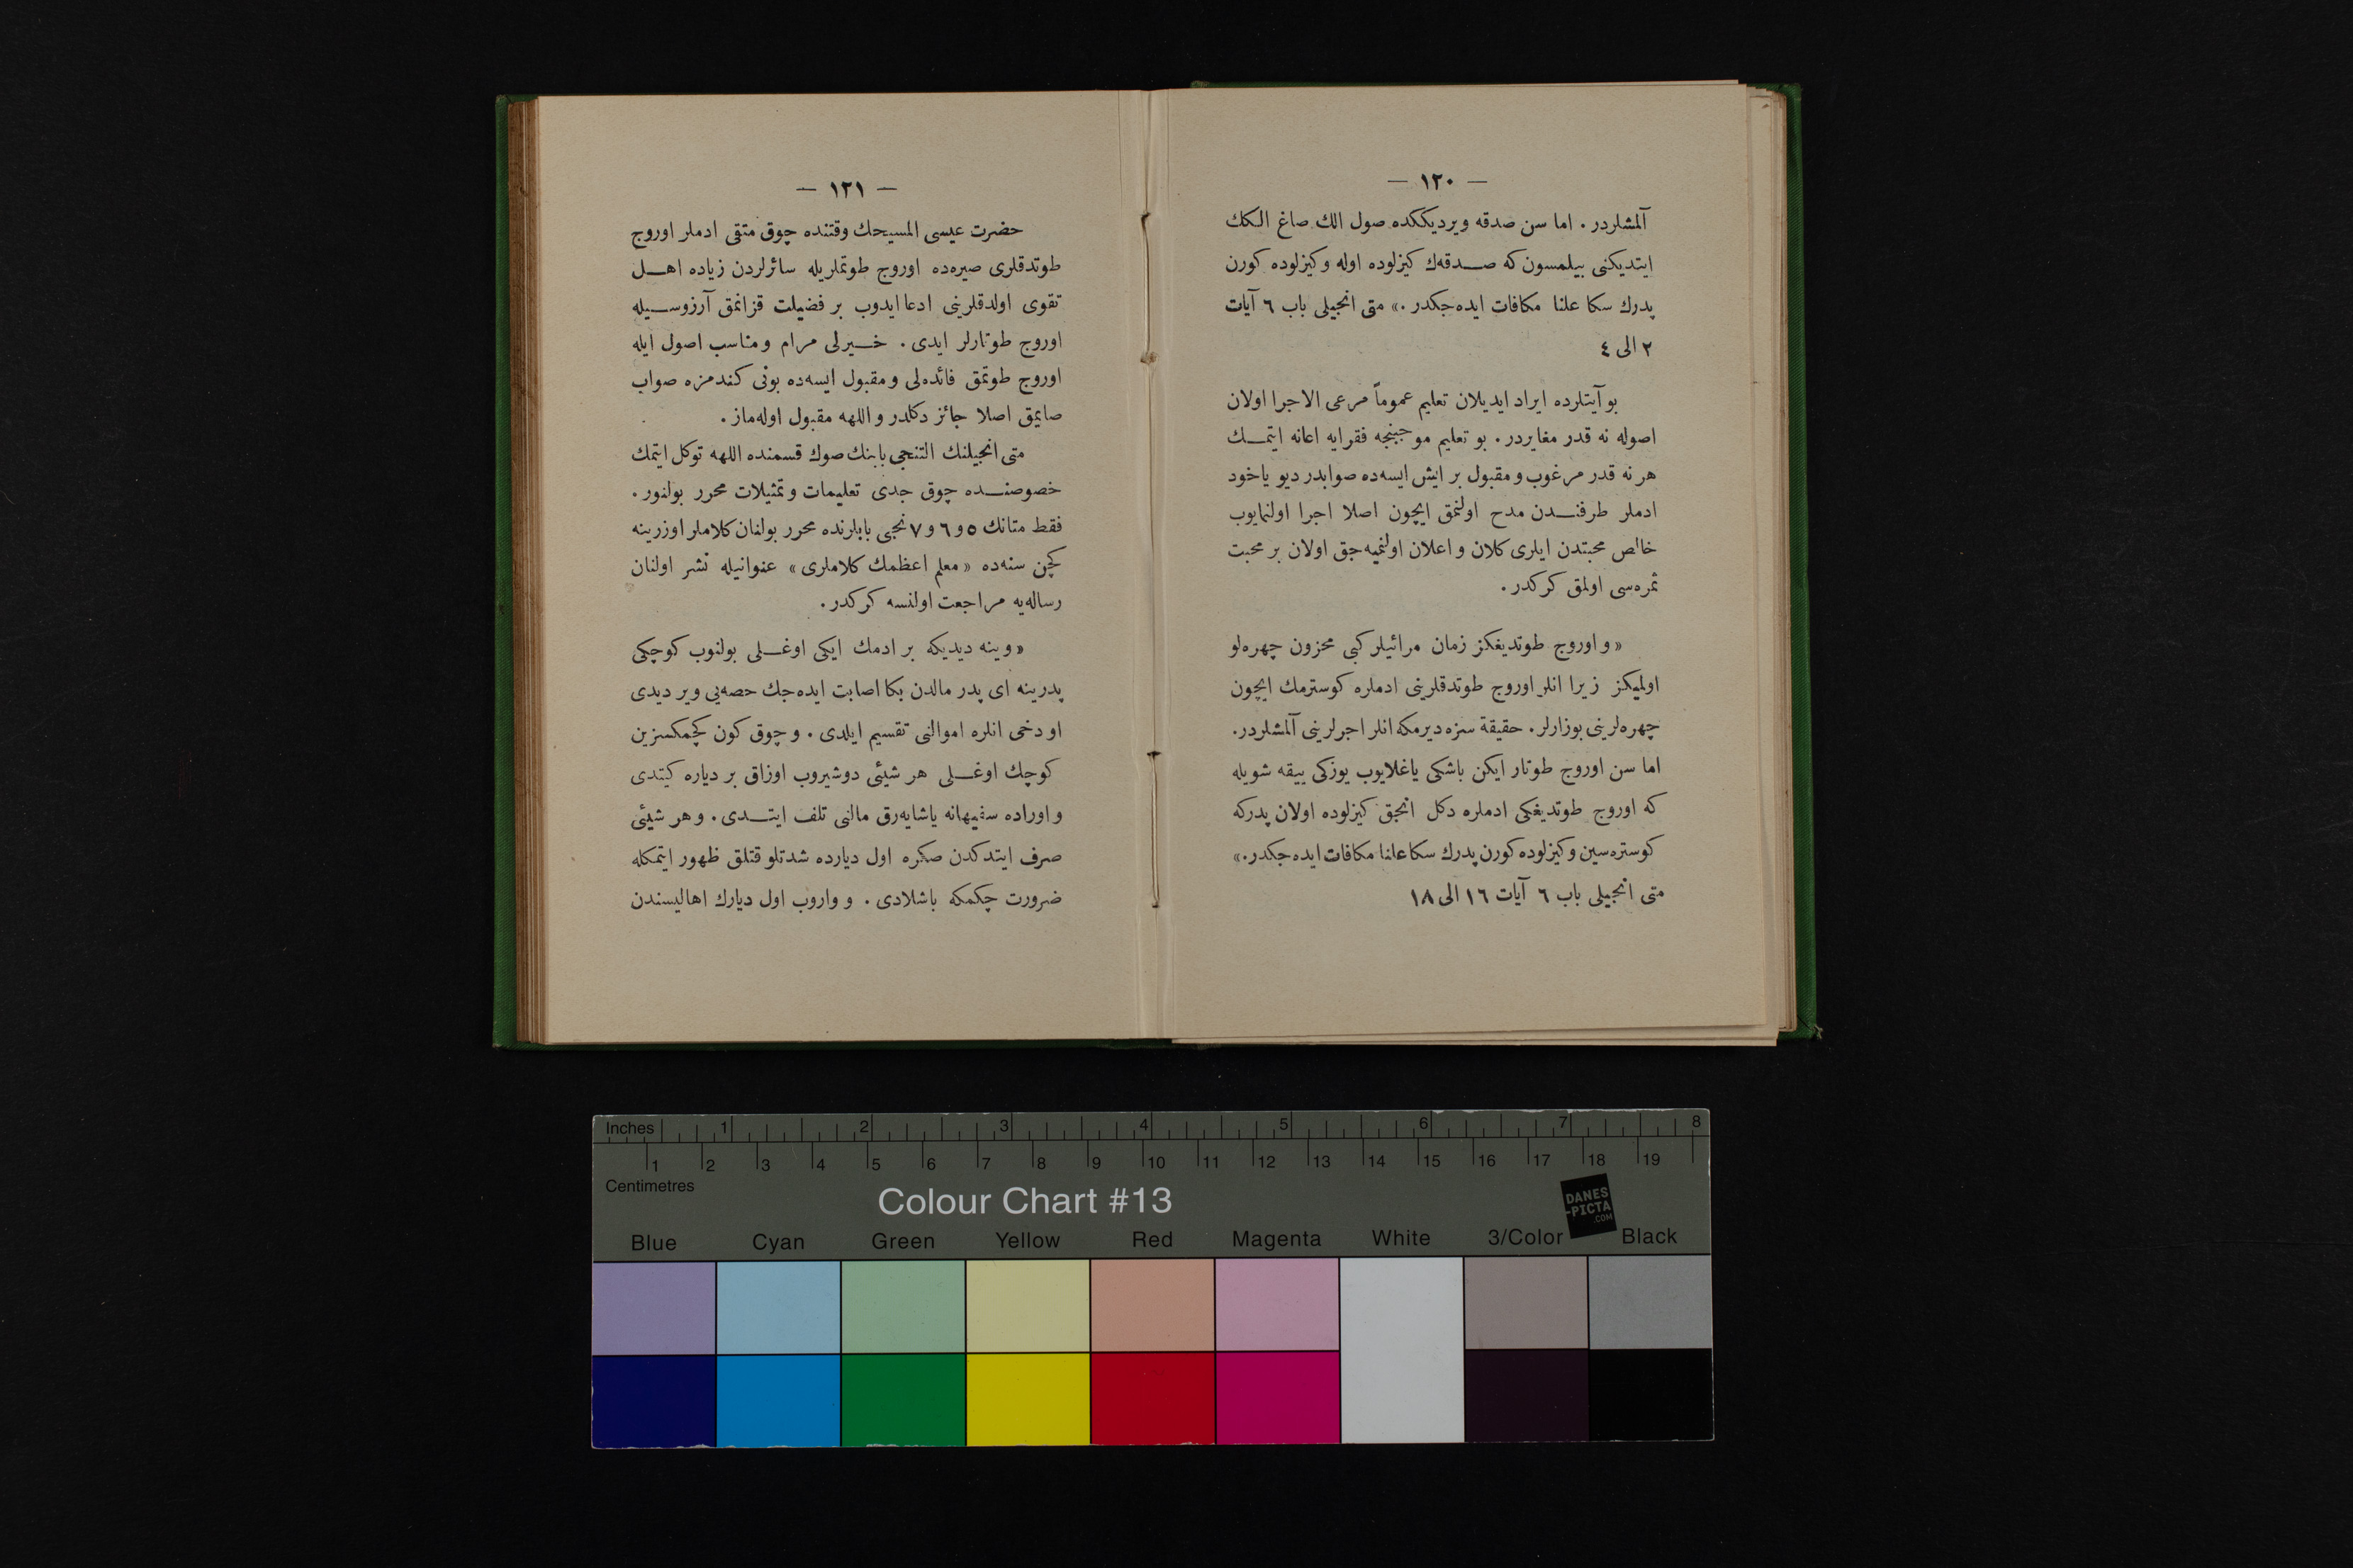 — ١٢٠ —
آلمشلردر . اما سن صدقه ويرديككده صول الك صاغ الكك
ايتديكنى بيلمسون كه صدقه‌ك كيزلوده اوله وكيزلوده كورن
پدرك سكا علنا مكافات ايده‌جكدر .» متى انجيلى باب ٦ آيات
٢ الى ٤
بو آيتلرده ايراد ايديلان تعليم عموماً مرعى الاجرا اولان
اصوله نه قدر مغايردر . بو تعليم موجبنجه فقرايه اعانه ايتمك
هر نه قدر مرغوب و مقبول بر ايش ايسه‌ده صوابدر ديو ياخود
ادملر طرفندن مدح اولنمق ايچون اصلا اجرا اولنمايوب
خالص محبتدن ايلرى كلان و اعلان اولنميه‌جق اولان بر محبت
ثمره‌سى اولمق كركدر .
« و اوروج طوتديغكز زمان مرائيلر كبى محزون چهره‌لو
اولميكز زيرا انلر اوروج طوتدقلرينى ادملره كوسترمك ايچون
چهره‌لرينى بوزارلر . حقيقة سزه ديرمكه انلر اجرلرينى آلمشلردر.
اما سن اوروج طوتار ايكن باشكى ياغلايوب يوزكى ييقه شويله
كه اوروج طوتديغكى ادملره دكل انجق كيزلوده اولان پدركه
كوستره‌سين وكيزلوده كورن پدرك سكا علنا مكافات ايده‌جكدر.»
متى انجيلى باب ٦ آيات ١٦ الى ١٨
— ١٢١ —
حضرت عيسى المسيحك وقتنده چوق متقى ادملر اوروج
طوتدقلرى صيره‌ده اوروج طوتملريله سائرلردن زياده اهل
تقوى اولدقلرينى ادعا ايدوب بر فضيلت قزانمق آرزوسيله
اوروج طوتارلر ايدى . خيرلى مرام و مناسب اصول ايله
اوروج طوتمق فائده‌لى و مقبول ايسه‌ده بونى كندمزه صواب
صايمق اصلا جائز دكلدر و اللهه مقبول اوله‌ماز .
متى انجيلنك التنجى بابنك صوك قسمنده اللهه توكل ايتمك
خصوصنده چوق جدى تعليمات و تمثيلات محرر بولنور .
فقط متانك ٥ و ٦ و ٧ نجى بابلرنده محرر بولنان كلاملر اوزرينه
كچن سنه‌ده « معلم اعظمك كلاملرى » عنوانيله نشر اولنان
رساله‌يه مراجعت اولنسه كركدر .
« وينه ديديكه بر ادمك ايكى اوغلى بولنوب كوچكى
پدرينه اى پدر مالدن بكا اصابت ايده‌جك حصه‌يى وير ديدى
او دخى انلره اموالنى تقسيم ايلدى . و چوق كون كچمكسزين
كوچك اوغلى هر شيئى دوشيروب اوزاق بر دياره كيتدى
و اوراده سفيهانه ياشايه‌رق مالنى تلف ايتدى . و هر شيئى
صرف ايتدكدن صكره اول ديارده شدتلو قتلق ظهور ايتمكله
ضرورت چكمكه باشلادى . و واروب اول ديارك اهاليسندن
Inches 1 2 3 4 5 6 7 8
1 2 3 4 5 6 7 8 9 10 11 12 13 14 15 16 17 18 19
Centimetres
Colour Chart #13
DANES
-PICTA
.COM
Blue Cyan Green Yellow Red Magenta White 3/Color Black